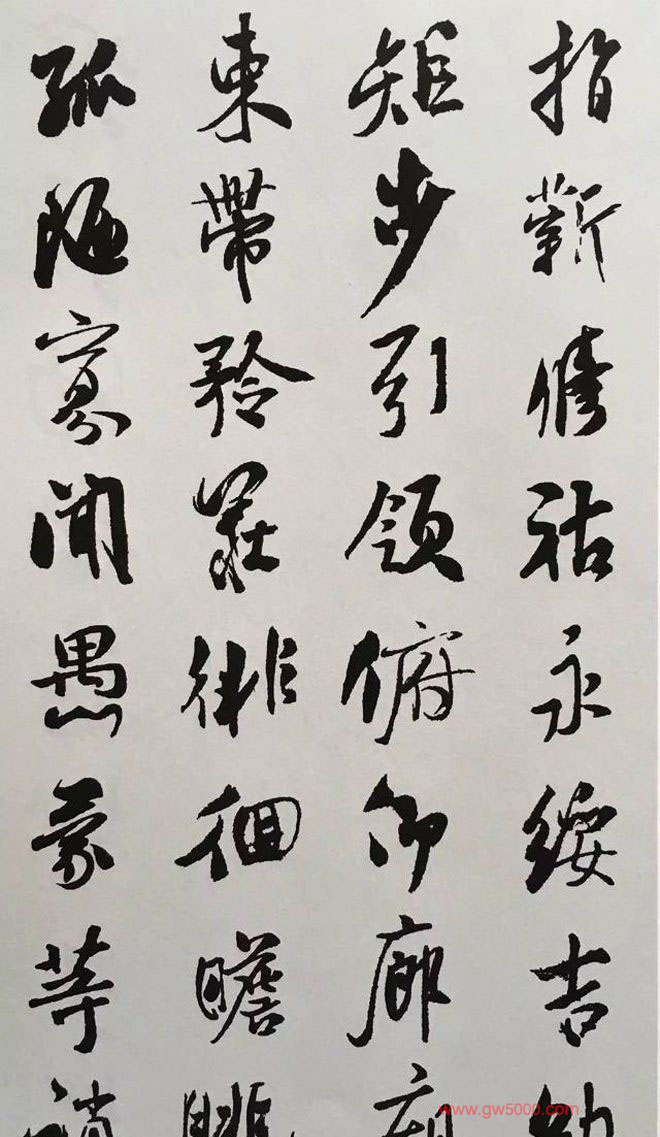 指薪修祜永綏吉劭
矩步引領俯仰廊廟
束帶矜莊徘徊瞻眺
孤陋寡聞愚蒙等誚
www.gw5000.com